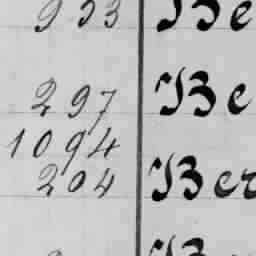 953 Be
297 Be
1094
204 Ber